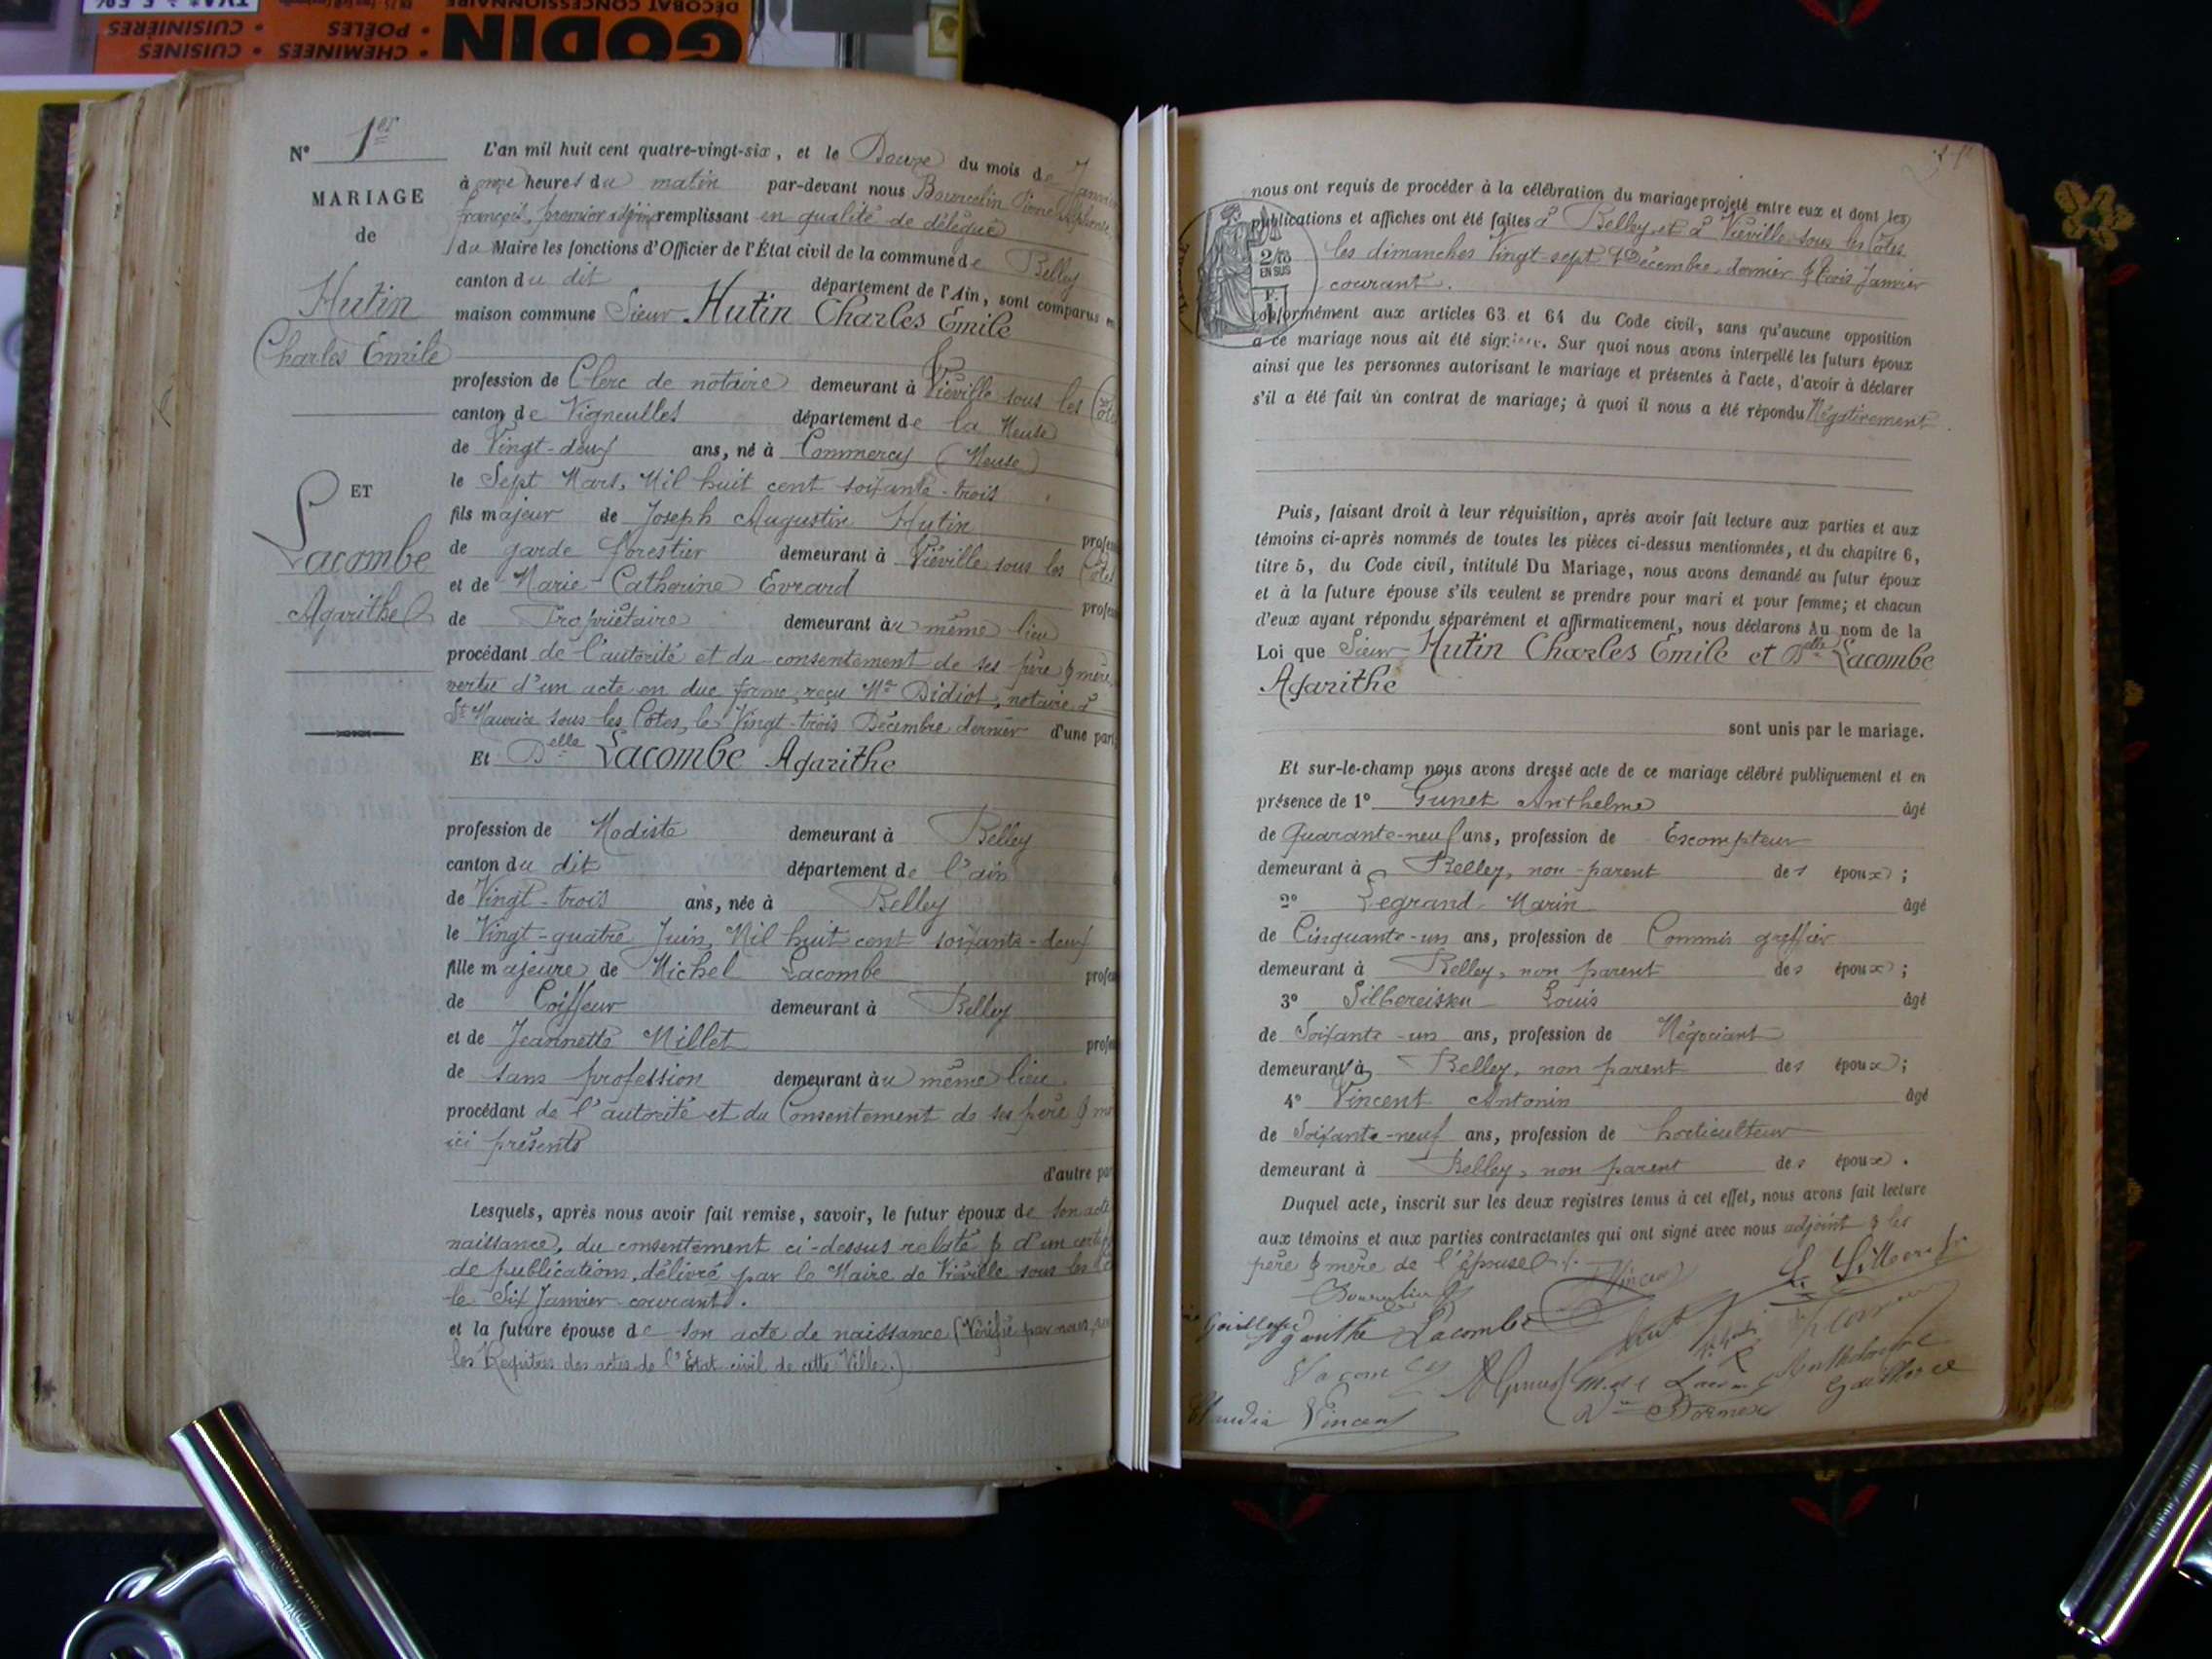 DÉCORAT CONCESSIONNAIRE
GODIN
• CHEMINÉES • CUISINES
• POÊLES • CUISINIÈRES
N° 1er
MARIAGE
de
Hutin
Charles Émile
ET
Lacombe
Agarithe
L'an mil huit cent quatre-vingt-six, et le Douze du mois de Janvier
à onze heures du matin par-devant nous Bourcelin Pierre
françois, premier adjoint remplissant en qualité de délégué
du Maire les fonctions d'Officier de l'État civil de la commune de Belley
canton du dit département de l'Ain, sont comparus en
maison commune Sieur Hutin Charles Émile
profession de Clerc de notaire demeurant à Viéville sous les Côtes
canton de Vigneulles département de la Meuse
de Vingt-deux ans, né à Commercy (Meuse)
le Sept Mars, Mil huit cent soixante-trois
fils majeur de Joseph Augustin Hutin profes
de garde forestier demeurant à Viéville sous les Côtes
et de Marie Catherine Evrard profes
de Propriétaire demeurant au même lieu
procédant de l'autorité et du consentement de ses père & mère,
vertu d'un acte en due forme, reçu Me Didiot, notaire à
St Maurice sous les Côtes, le Vingt-trois Décembre dernier d'une part
Et Delle Lacombe Agarithe
profession de Modiste demeurant à Belley
canton du dit département de l'ain
de Vingt-trois ans, née à Belley
le Vingt-quatre Juin, Mil huit cent soixante-deux
fille majeure de Michel Lacombe profes
de Coiffeur demeurant à Belley
et de Jeannette Millet profes
de sans profession demeurant au même lieu
procédant de l'autorité et du Consentement de ses père & m
ici présents
d'autre par
Lesquels, après nous avoir fait remise, savoir, le futur époux de son acte
naissance, du consentement ci-dessus relaté & d'un certif
de publications, délivré par le Maire de Viéville sous les C
le Six Janvier courant.
et la future épouse de son acte de naissance (Vérifié par nous, sur
les Registres des actes de l'Etat civil de cette Ville.)
2/10
EN SUS
nous ont requis de procéder à la célébration du mariage projeté entre eux et dont les
publications et affiches ont été faites à Belley et à Viéville sous les Côtes
les dimanches Vingt-sept Décembre dernier & trois Janvier
courant.
conformément aux articles 63 et 64 du Code civil, sans qu'aucune opposition
à ce mariage nous ait été signifiée. Sur quoi nous avons interpellé les futurs époux
ainsi que les personnes autorisant le mariage et présentes à l'acte, d'avoir à déclarer
s'il a été fait un contrat de mariage; à quoi il nous a été répondu Négativement
Puis, faisant droit à leur réquisition, après avoir fait lecture aux parties et aux
témoins ci-après nommés de toutes les pièces ci-dessus mentionnées, et du chapitre 6,
titre 5, du Code civil, intitulé Du Mariage, nous avons demandé au futur époux
et à la future épouse s'ils veulent se prendre pour mari et pour femme; et chacun
d'eux ayant répondu séparément et affirmativement, nous déclarons Au nom de la
Loi que Sieur Hutin Charles Émile et Delle Lacombe
Agarithe
sont unis par le mariage.
Et sur-le-champ nous avons dressé acte de ce mariage célébré publiquement et en
présence de 1° Gunet Anthelme âgé
de Quarante-neuf ans, profession de Escompteur
demeurant à Belley, non parent des époux;
2° Legrand Marin âgé
de Cinquante-un ans, profession de Commis greffier
demeurant à Belley, non parent des époux;
3° Silbereisen Louis âgé
de Soixante-un ans, profession de Négociant
demeurant à Belley, non parent des époux;
4° Vincent Antonin âgé
de Soixante-neuf ans, profession de horticulteur
demeurant à Belley, non parent des époux.
Duquel acte, inscrit sur les deux registres tenus à cet effet, nous avons fait lecture
aux témoins et aux parties contractantes qui ont signé avec nous adjoint & les
père & mère de l'épouse.
Vincent
Agarithe Lacombe
Lacombe
Claudia Vincent